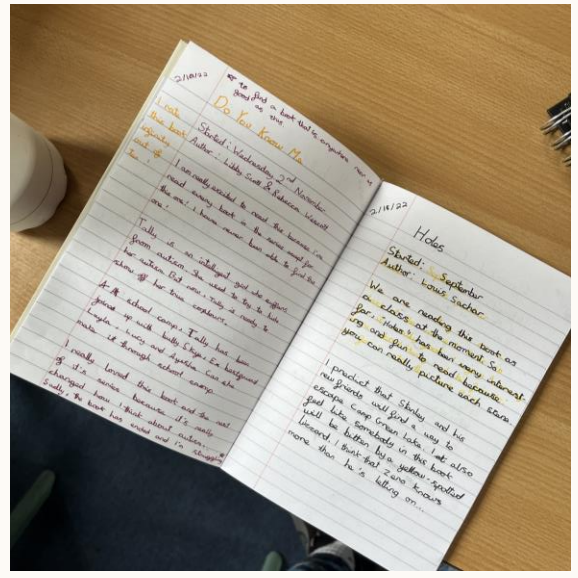 2/11/22
to find a book that is anywhere near as
good as this.
Do You Know Me
I rate
this book
infinity
out of
ten!
Started: Wednesday 2nd November
Author: Libby Scott & Rebecca Westcott
I am really excited to read this because I've
read every book in the series except for
this one! I have never been able to find the
one!
Tally is an intelligent girl who suffers
from autism. She used to try to hide
her autism. But now, Tally is ready to
show off her true colours.
At school camp, Tally has been
joined up with bully Skye. Ex background
Layla, Lucy and Ayesha. Can she
make it through school camp
I really loved this book and the rest
of it's series because it's really
changed how I think about autism.
Sadly, the book has ended and I'm struggling
2/11/22
Holes
Started: September
Author: Louis Sachar
We are reading this book as
a class at the moment. So
far, Holes has been very interest-
ing and fun to read because
you can really picture each scene.
I predict that Stanley and his
new friends will find a way to
escape Camp Green Lake. I also
feel like somebody in this book
will be bitten by a yellow-spotted
lizzard. I think that Zero knows
more than he's letting on...